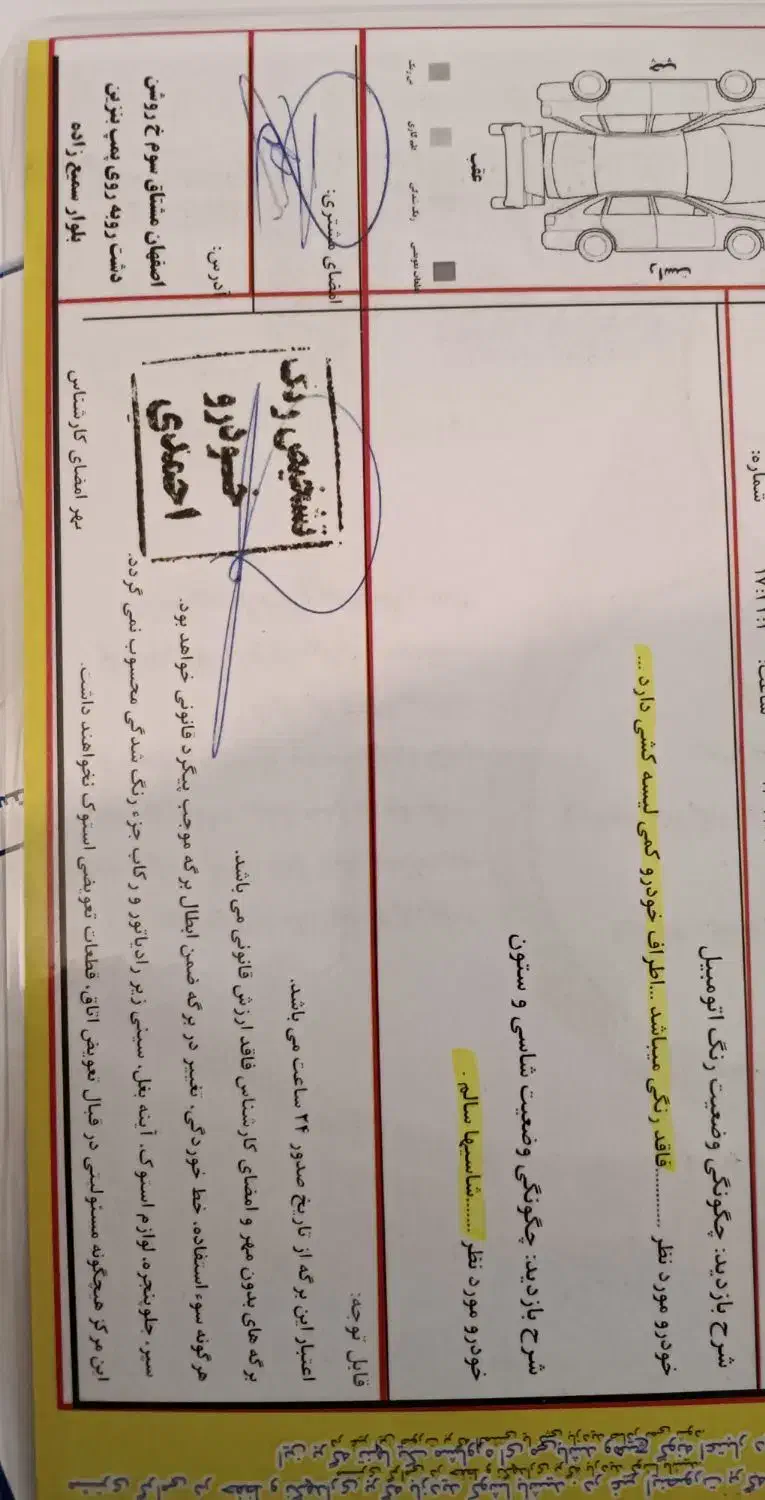 شماره:
ساعت:
۱۷:۲۱:۱
شرح بازدید: چگونگی وضعیت رنگ اتومبیل
خودرو مورد نظر ............فاقد رنگی میباشد ...اطراف خودرو کمی لیسه کشی دارد ...
شرح بازدید: چگونگی وضعیت شاسی و ستون
خودرو مورد نظر .......شاسیها سالم .
عقب
رنگ شدگی
امضای مشتری:
آدرس:
اصفهان مشتاق سوم خ روشن
دشت روبه روی پمپ بنزین
بلوار سمیع زاده
قابل توجه:
اعتبار این برگه از تاریخ صدور ۲۴ ساعت می باشد.
برگه های بدون مهر و امضای کارشناس فاقد ارزش قانونی می باشد.
هر گونه سوء استفاده، خط خوردگی، تغییر در برگه ضمن ابطال برگه موجب پیگرد قانونی خواهد بود.
سپر، جلوپنجره، لوازم استوک، آینه بغل، سینی زیر رادیاتور و رکاب جزء رنگ شدگی محسوب نمی گردد.
این مرکز هیچگونه مسئولیتی در قبال تعویض اتاق، قطعات تعویضی استوک نخواهند داشت.
مهر امضای کارشناس
تشخیص رنگ
خودرو
احمدی